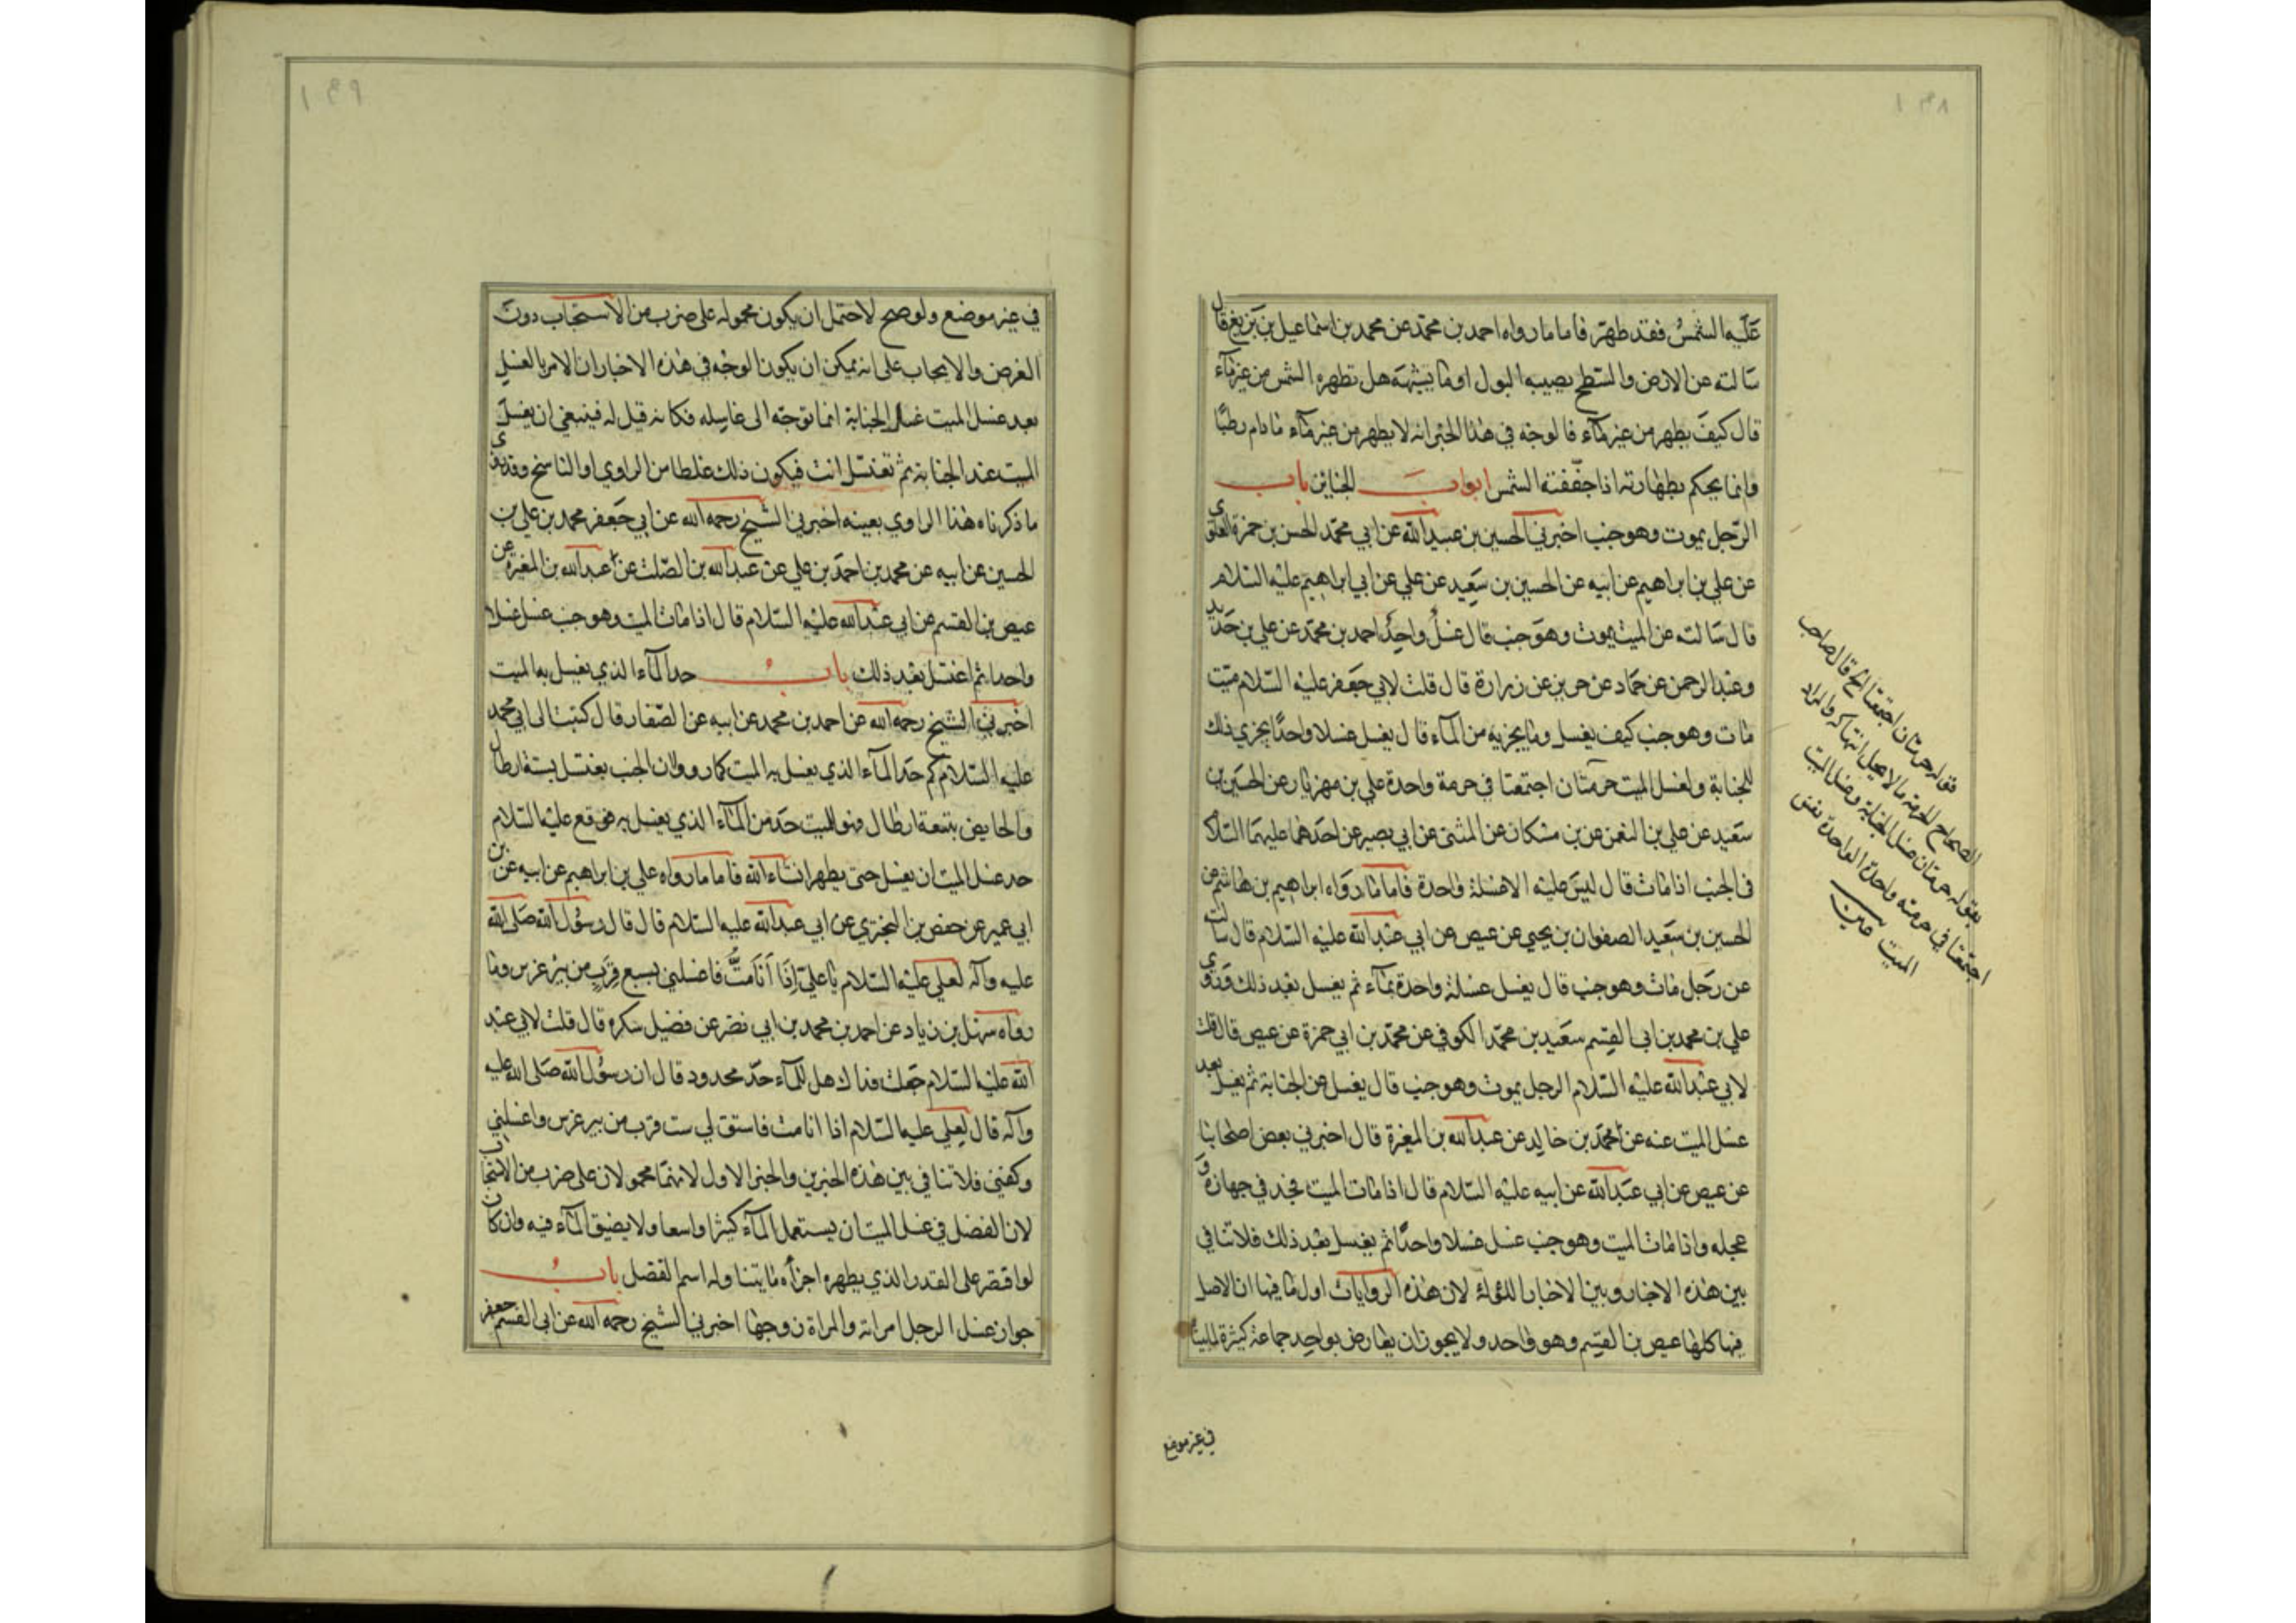 ١٩٨
عَلَيه الشمسُ فقد طهرَ فاما ما رواه احمد بن محمّد عن محمد بن اسماعيل بن بَزيع قال
سَالته عن الارض والسَّطح يصيبه البول او ما يشبهَه هل تطهره الشمس من غير مآء
قال كيفَ يطهر من غير مآء فا لوجه في هذا الخبر انه لا يطهر من غير مآء مادام رطبًا
وانما يحكم بطهارته اذا جفّفته الشمس ابوابَ الجنايز باب
الرّجل يموت وهو جنب اخبرني الحسين بن عبيد الله عن ابي محمّد الحسن بن حمزة العلوي
عن علي بن ابراهيم عن ابيه عن الحسين بن سَعِيد عن علي عن ابي ابراهيم عليْه السّلام
قال سَالته عن الميت يموت وهوَ جنب قال غسلٌ واحِدٌ احمد بن محمّد عن علي بن حَديد
وعبْد الرحمن عن حمّاد عن حريز عن زرارة قال قلت لابي جَعفر عليْه السّلام ميّت
مات وهو جنب كيف يغسل وما يجزيه من المآء قال يغسل غسلا واحدًا يجزي ذلك
للجنابة ولغسل الميت حرمتان اجتمعتا في حرمة واحدة علي بن مهزيار عن الحسَين بن
سَعيد عن علي بن النعمن عن بن مسكان عن المثنى عن ابي بصير عن احَدهما عليهمَا السّلام
في الجنب اذا مات قال ليسَ عليْه الا غسلة واحدة فاما ما روَاه ابراهيم بن هاشم عن
الحسين بن سَعِيد الصفوان بن يحيى عن عيص عن ابي عبْد الله عليْه السّلام قال سالت
عن رَجل مات وهو جنب قال يغسل غسلة واحدة بمآء ثم يغسل بعْد ذلك وَروي
علي بن محمد بن ابى القسم سعَيد بن محمّد الكوفي عن محمّد بن ابي حمزة عن عيص قال قلت
لابي عبْد الله عليْه السّلام الرجل يموت وهو جنب قال يغسل من الجنابة ثم يغسل بعد
غسل الميت عنه عن محمّد بن خالِد عن عبد الله بن المغيرة قال اخبرني بعض اصحابنا
عن عيص عن ابي عبَد الله عن ابيه عليْه السّلام قال اذا مات الميت فخذ في جهازه و
عجله واذا مات الميت وهو جنب غسل غسلا واحدًا ثم يغسل بعْد ذلك فلا تنافي
بين هذه الاخبار وبين الاخبار الاوله لان هذه الروايات اول ما فيها ان الاصل
فيها كلها عيص بن القسِم وهو واحد ولا يجوز ان يعارض بواحِد جماعة كثيرة لما بينا
في غير موضع
قوله حرمتان اجتمعتا الخ قال صاحب
الصحاح الحرمة ما لا يحل انتهاكه والمراد
بقوله حرمتان غسل الجنابة وغسل الميت
اجتمعتا في حرمة واحدة الواحدة نفس
الميت
١٩٩
في غير موضع ولو صح لاحتمل ان يكون محموله على ضرب من الاستحباب دون
الفرض والايجاب على انه يمكن ان يكون الوجْه في هذه الاخبار ان الامر بالغسل
بعد غسل الميت غسل الجنابة انما توجّه الى غاسِله فكانه قيل له فينبغي ان يغسل
الميت عند الجنابة ثم تغتسل انت فيكون ذلك غلطا من الراوي او الناسخ وقد روي
ما ذكرناه هذا الراوي بعينه اخبرني الشيخ رحمه الله عن ابي جَعفر محمد بن علي بن
الحسين عن ابيه عن محمد بن احمَد بن علي عن عبد الله بن الصّلت عن عبد الله بن المغيرة عن
عيص بن القسم عن ابي عبْد الله عليْه السّلام قال اذا مات الميت وهو جنب غسل غسلا
واحدا ثم اغتسل بعْد ذلك بابٌ حد المآء الذي يغسل به الميت
اخبرني الشيخ رحمه الله عن احمد بن محمد عن ابيه عن الصّفار قال كتبت الى ابي محمد
عليْه السّلام كم حدّ المآء الذي يغسل به الميت كما رووا ان الجنب يغتسل بستة ارطال
والحايض بتسعة ارطال فهو للميت حدّ من المآء الذي يغسل به فوقع عليْه السّلام
حد غسل الميت ان يغسل حتى يطهر انشاء الله فاما ما رواه علي بن ابراهيم عن ابيه عن بن
ابي عمير عن حفص بن البختري عن ابي عبد الله عليه السّلام قال قال رسُول الله صَلى الله
عليه وآله لعلي عليْه السّلام يا عليّ اِذَا أنَا مَتُّ فاغسلني بسبع قِرَبٍ من بيْر غرس وما
رواه سهل بن زياد عن احمد بن محمد بن ابي نصْر عن فضيل سكره قال قلت لابي عبْد
الله عليْه السّلام جعلت فداك هل للمآء حدّ محدود قال ان رسُول الله صَلى الله عليه
وآله قال لعلي عليه السّلام اذا انا مت فاستق لي ست قرب من بير غرس واغسلني
وكفني فلا تنافي بين هذه الخبرين والخبر الاول لانهمَا محمولان على ضرب من الاستحباب
لان الفضل في غسل الميت ان يستعمل المآء كثيرا واسعا ولا يضيق المآء فيه وان كان
لو اقتصر على القدر الذي يطهره اجزأه ما يتناوله اسم الفضل بابُ
جواز غسل الرجل امراته والمراة زوجها اخبرني الشيخ رحمه الله عن ابى القسم جعفر